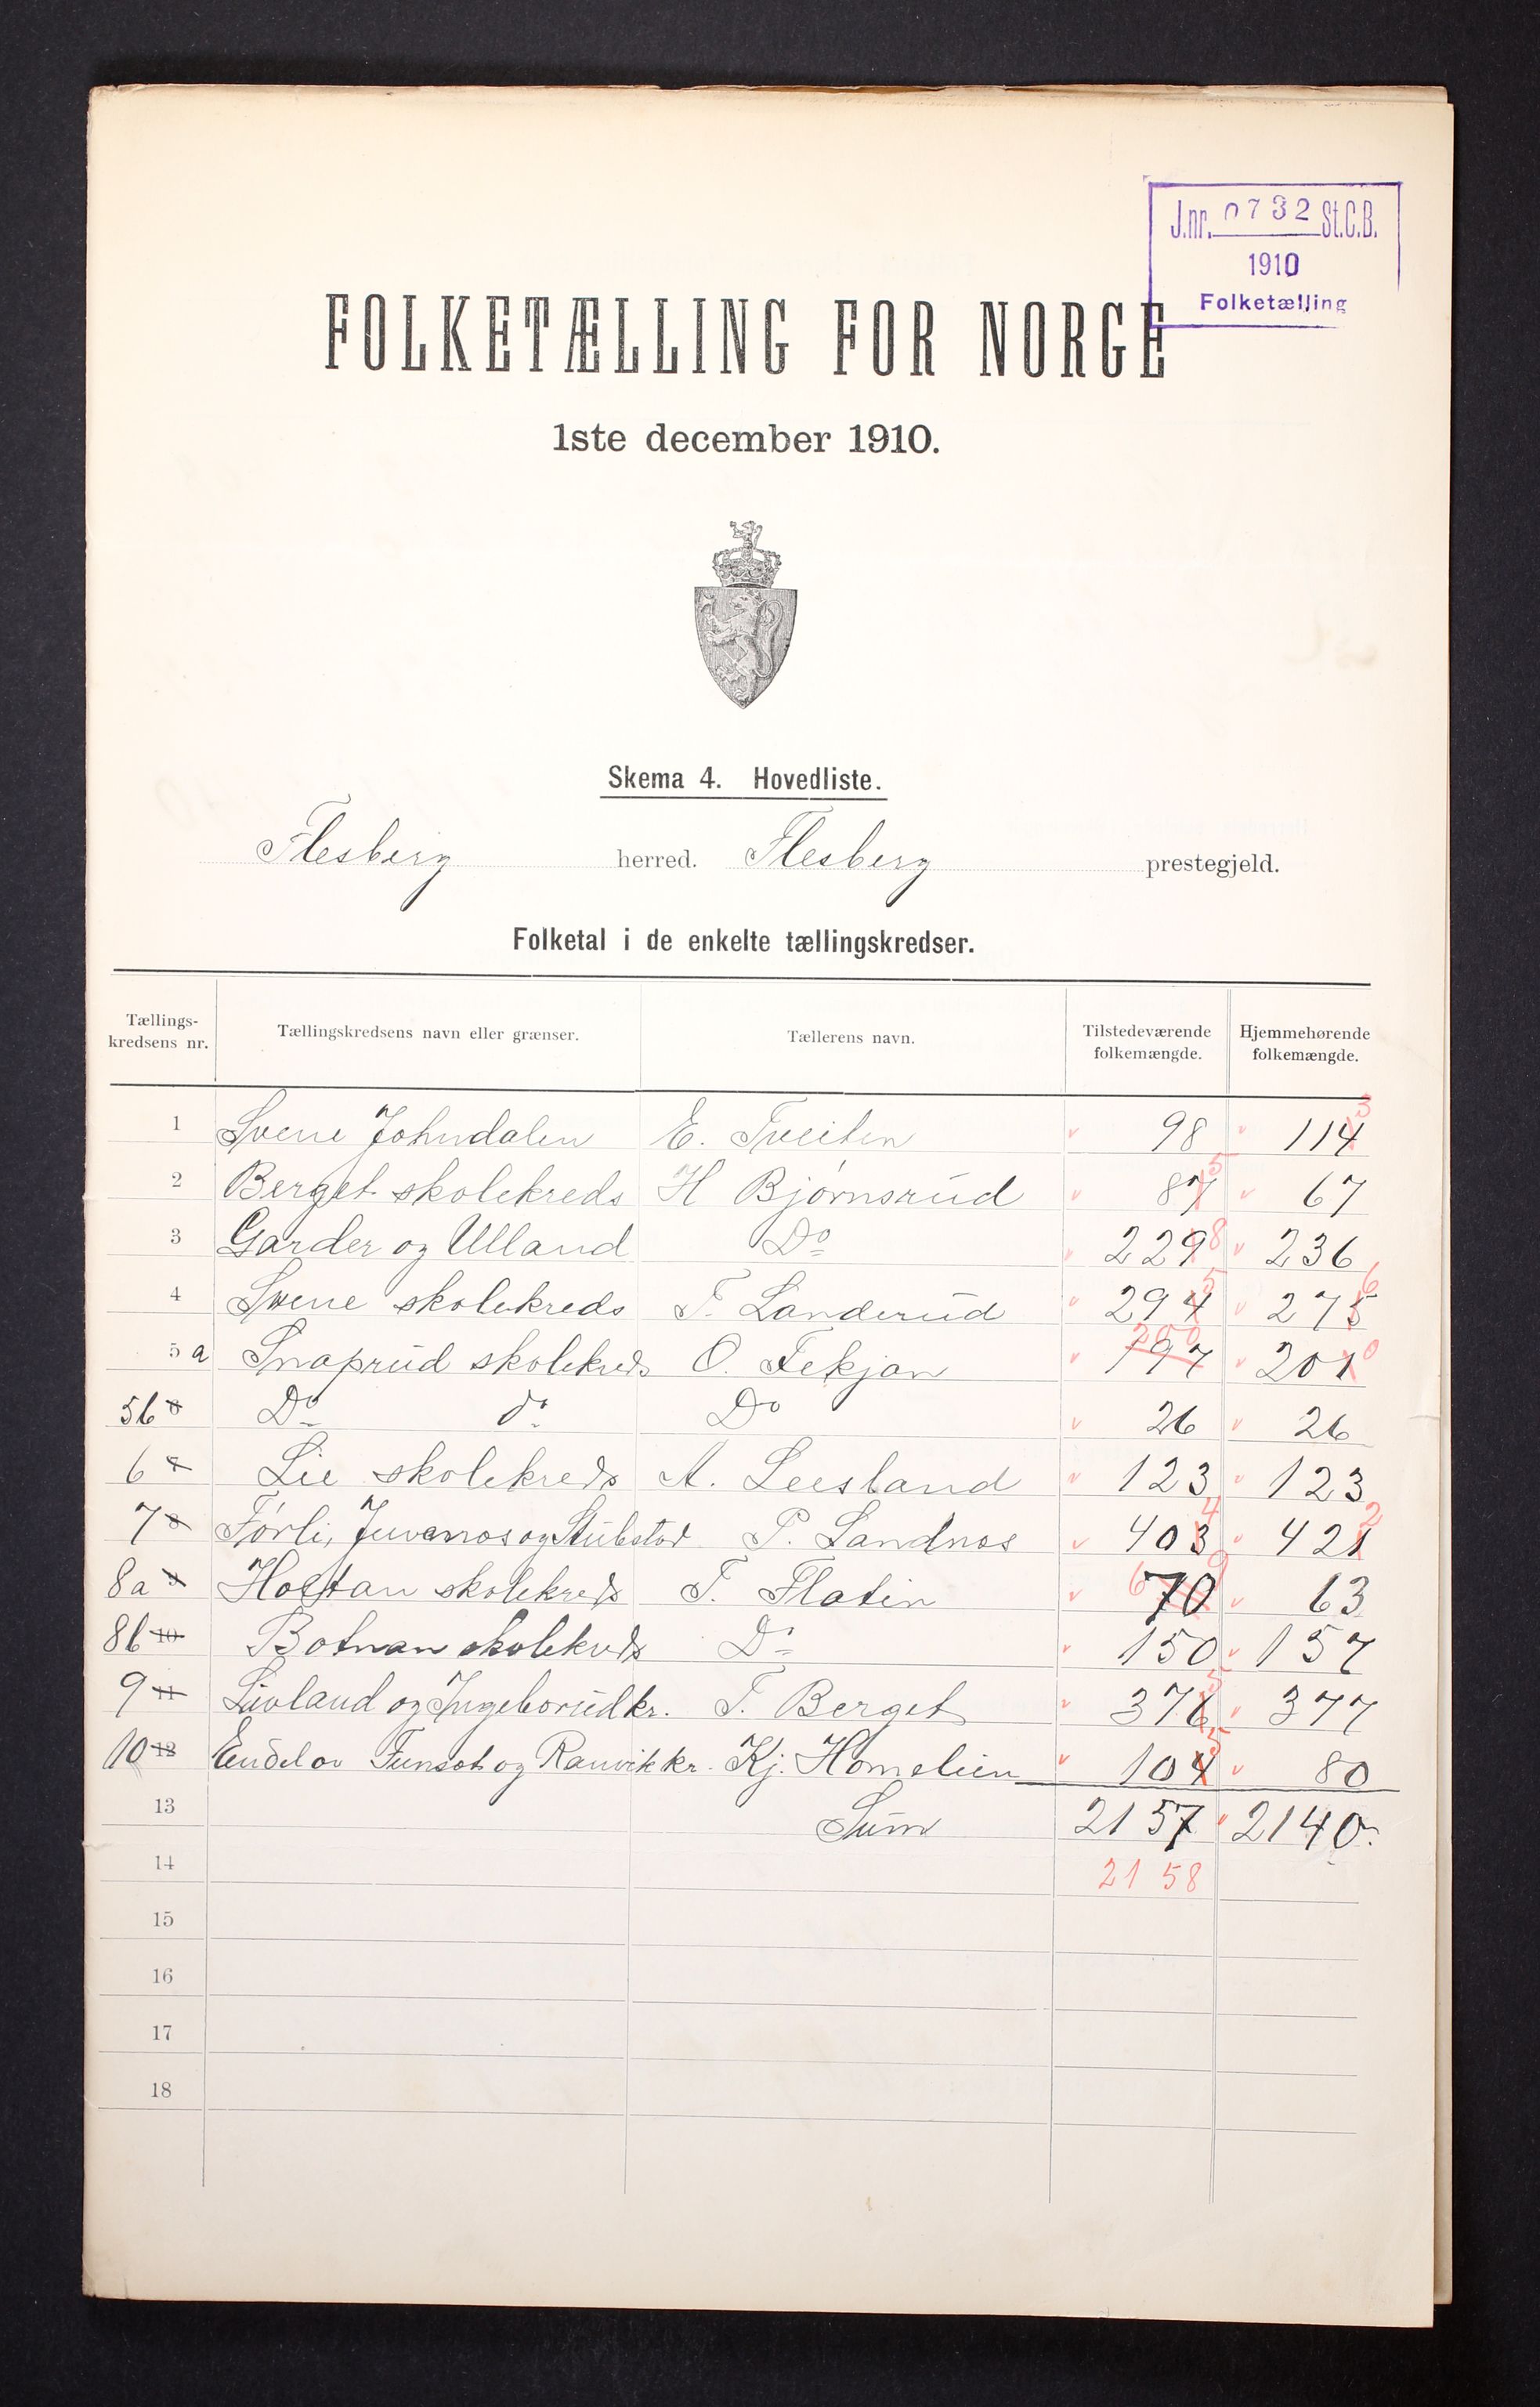 J.nr. 0732 St.C.B.
1910
Folketælling
FOLKETÆLLING FOR NORGE
1ste december 1910.
Skema 4. Hovedliste.
Flesberg herred. Flesberg prestegjeld.
Folketal i de enkelte tællingskredser.
Tællings-kredsens nr. Tællingskredsens navn eller grænser. Tællerens navn. Tilstedeværende folkemængde. Hjemmehørende folkemængde.
1 Svene Johndalen E. Tveiten 98 114 3
2 Berget skolekreds H Bjørnsrud 87 5 67
3 Garder og Ulland Do 229 8 236
4 Svene skolekreds T. Landerud 294 5 275 6
5 a Snaprud skolekreds O. Tekjan 197 200 201 0
5b Do do Do 26 26
6 Lie skolekreds A. Leesland 123 123
7 Førli, Juvenes og Stubstad P. Landnos 403 4 421 2
8a skolekreds T. Flatin 70 69 63
8b 10 Botnan skolekreds Do 150 157
9 11 Livland og Ingeborudkr. T. Berget 376 5 377
10 12 og Ranvikkr. Kj. Homelien 104 5 80
13 Sum 2157 2140.
14 2158
15
16
17
18